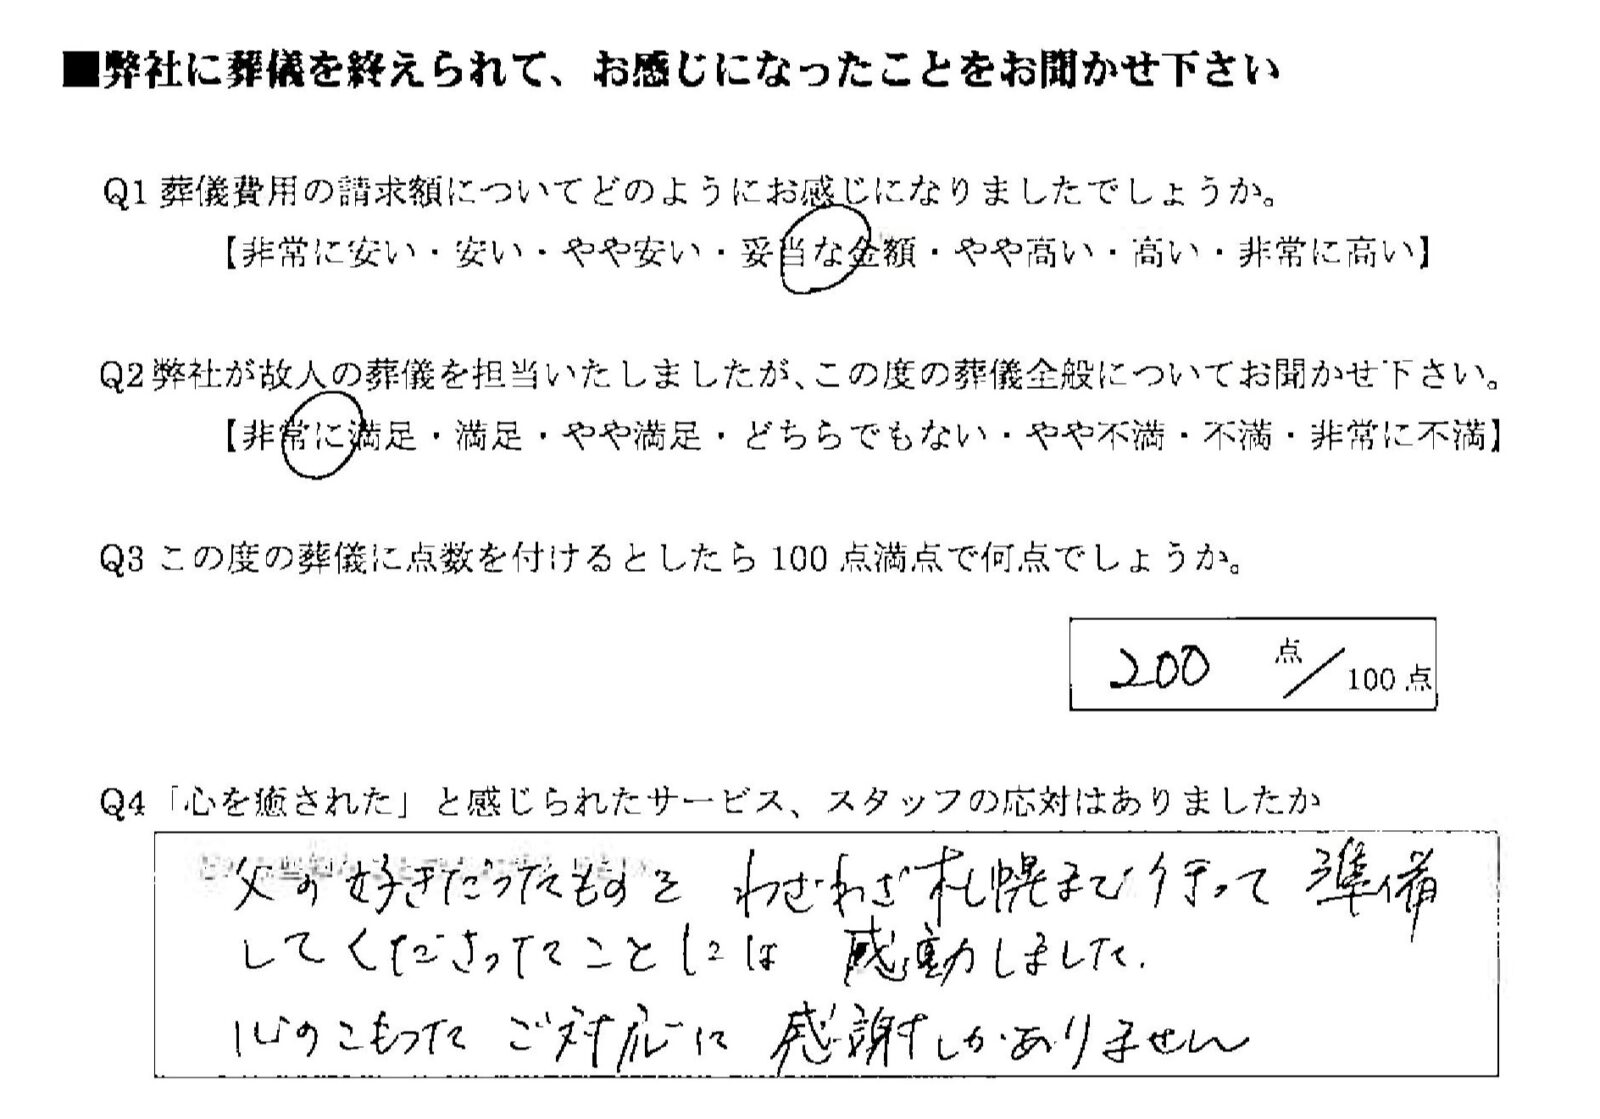 ■弊社に葬儀を終えられて、お感じになったことをお聞かせ下さい
Q1 葬儀費用の請求額についてどのようにお感じになりましたでしょうか。
【非常に安い・安い・やや安い・妥当な金額・やや高い・高い・非常に高い】
Q2 弊社が故人の葬儀を担当いたしましたが、この度の葬儀全般についてお聞かせ下さい。
【非常に満足・満足・やや満足・どちらでもない・やや不満・不満・非常に不満】
Q3 この度の葬儀に点数を付けるとしたら 100 点満点で何点でしょうか。
200 点/100 点
Q4「心を癒された」と感じられたサービス、スタッフの応対はありましたか
父の好きだったものをわざわざ札幌まで行って準備
してくださったことには感動しました.
心のこもったご対応に感謝しかありません